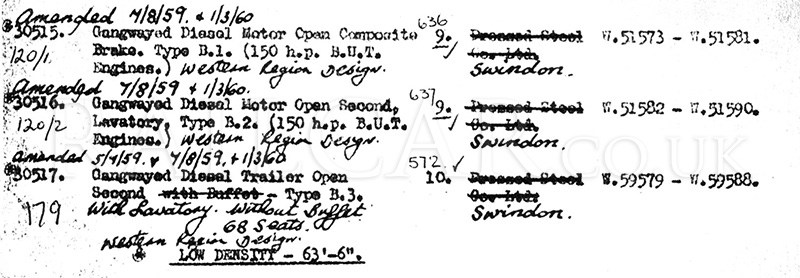 Amended 7/8/59. & 1/3/60
30515. Gangwayed Diesel Motor Open Composite 636 9. Pressed Steel W.51573 - W.51581.
120/1 Brake. Type B.1. (150 h.p. B.U.T. Co. Ltd.
Engines.) Western Region Design. Swindon.
Amended 7/8/59 & 1/3/60.
30516. Gangwayed Diesel Motor Open Second, 637 9. Pressed Steel W.51582 - W.51590.
120/2 Lavatory, Type B.2. (150 h.p. B.U.T. Co. Ltd.
Engines.) Western Region Design. Swindon.
Amended 5/4/59. & 7/8/59. & 1/3/60 572. ✓
30517. Gangwayed Diesel Trailer Open 10. Pressed Steel W.59579 - W.59588.
Second with Buffet - Type B.3. Co. Ltd.
179 With Lavatory. Without Buffet Swindon.
68 Seats.
Western Region Design.
* LOW DENSITY - 63'-6".
RAILCAR.co.uk